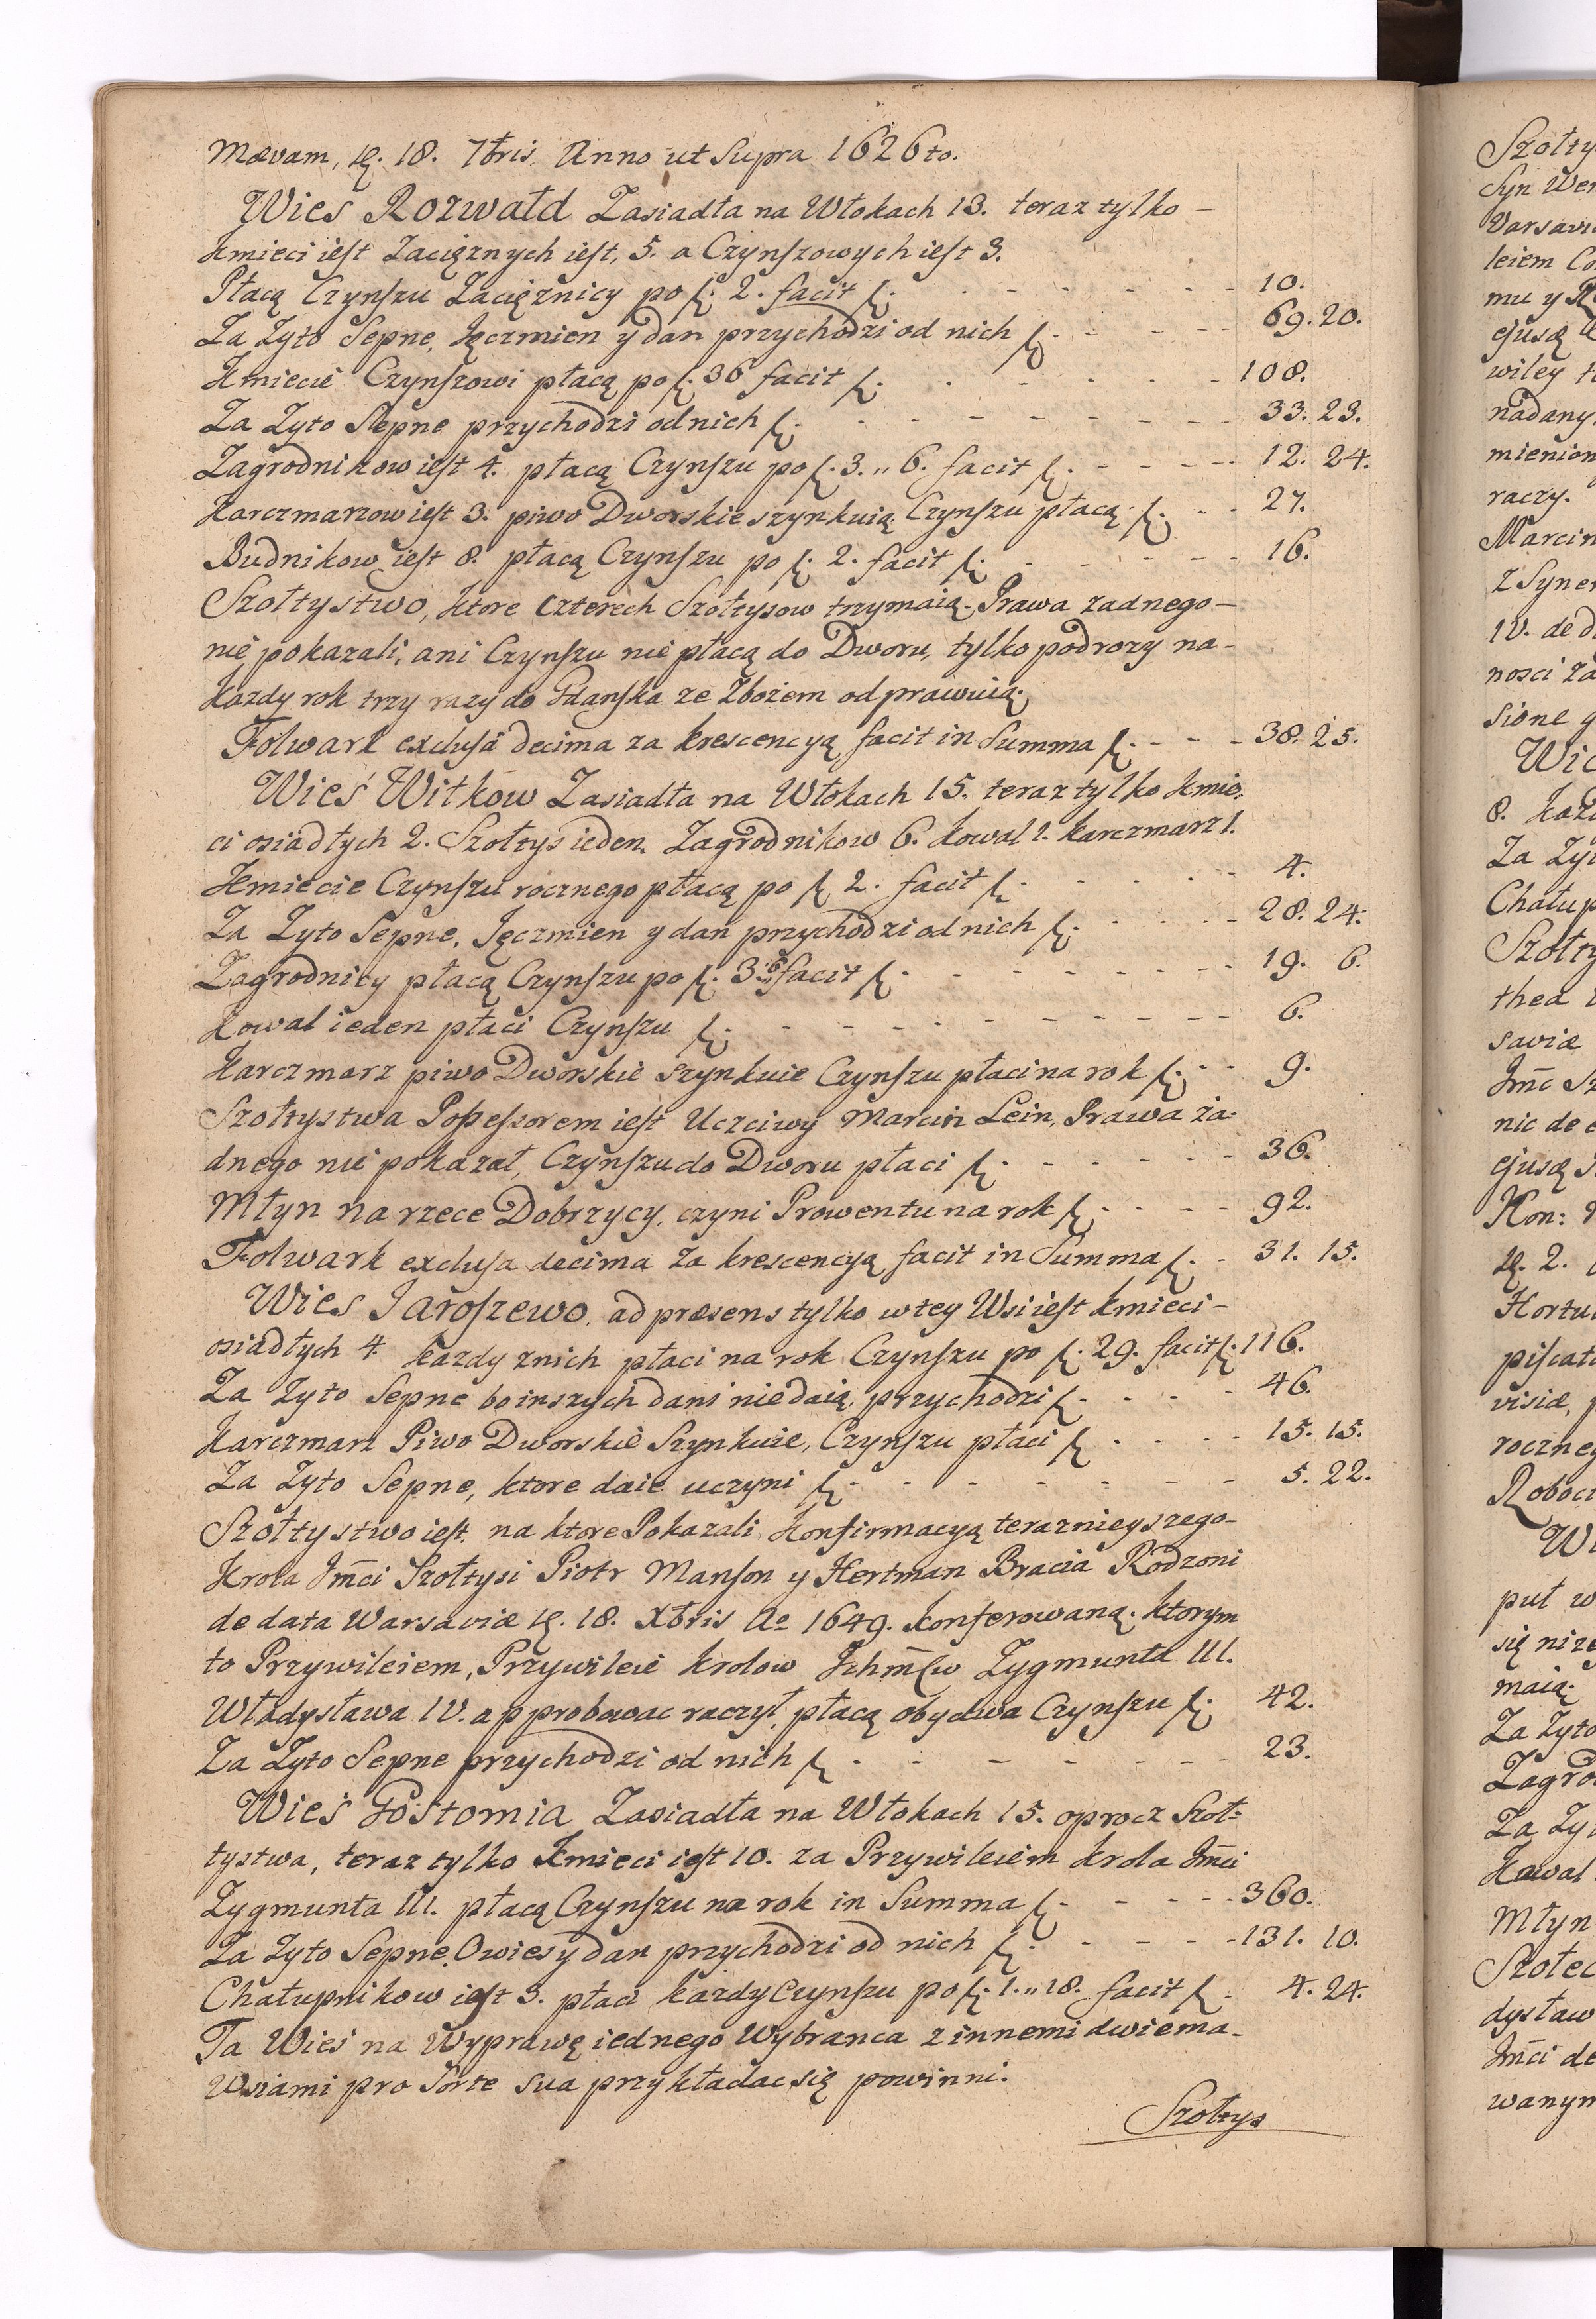 Mævam, d. 18. 7bris, Anno ut Supra 1626to.
Wies Rozwałd Zasiadła na Włokach 13. teraz tylko –
Kmieci iest Zaciężnych iest, 5. a Czynszowych iest 3.
Płacą Czynszu Zaciężnicy po f. 2. facit f. 10.
Za Zyto Sepne, Jęczmien y dan przychodzi od nich f. 69. 20.
Kmiecie Czynszowi płacą po f. 36 facit f. 108.
Za Zyto Sepne przychodzi od nich f. 33. 23.
Zagrodnikow iest 4. płacą Czynszu po f. 3. „ 6. facit f. 12. 24.
Karczmarzow iest 3. piwo Dworskie szynkuią. Czynszu płacą f. 27.
Budnikow iest 8. płacą Czynszu po f. 2. facit f. 16.
Szołtystwo, ktore czterech Szołtysow trzymaią. Prawa zadnego –
nie pokazali, ani Czynszu nie płacą do Dworu, tylko podrozy na –
kazdy rok trzy razy do Gdanska ze Zbożem odprawuią.
Folwark exclusa decima za krescencyą facit in Summa f. 38. 25.
Wieś Witkow Zasiadła na Włokach 15. teraz tylko Kmie:
ci osiadłych 2. Szołtys ieden. Zagrodnikow 6. Kowal 1. Karczmarz 1.
Kmiecie Czynszu rocznego płacą po f. 2. facit f. 4.
Za Zyto Sepne, Jęczmien y dań przychodzi od nich f. 28. 24.
Zagrodnicy płacą Czynszu po f. 3. „ 6 facit f. 19. 6.
Kowal ieden płaci Czynszu f. 6.
Karczmarz piwo Dworskie szynkuie Czynszu płaci na rok f. 9.
Szołtystwa Possessorem iest Uczciwy Marcin Lein, Prawa ża-
dnego nie pokazał, Czynszu do Dworu płaci f. 36.
Młyn na rzece Dobrzycy, czyni Prowentu na rok f. 92.
Folwark exclusa decima za krescencyą facit in Summa f. 31. 15.
Wies Jaroszewo, ad præsens tylko w tey Wsi iest kmieci –
osiadłych 4. kazdy z nich płaci na rok Czynszu po f. 29. facit f. 116.
Za Zyto Sepne bo inszych dani nie daią, przychodzi f. 46.
Karczmarz Piwo Dworskie Szynkuie, Czynszu płaci f. 15. 15.
Za Zyto Sepne, ktore daie uczyni f. 5. 22.
Szołtystwo iest, na ktore Pokazali Konfirmacyą teraznieyszego –
Krola Jmci Szołtysi Piotr Manson y Hertman Bracia Rodzoni
de data Warsaviæ d. 18. Xbris Ao 1649. konferowaną. ktorym
to Przywileiem, Przywileie krolow Ichmćw Zygmunta III.
Władysława IV. approbowac raczył, płacą obydwa Czynszu f. 42.
Za Zyto Sepne przychodzi od nich f. 23.
Wieś Gostomia Zasiadła na Włokach 15. oprocz Szoł:
tystwa, teraz tylko Kmieci iest 10. za Przywileiem krola Jmci
Zygmunta III. płacą Czynszu na rok in Summa f. 360.
Za Zyto Sepne, Owies y dan przychodzi od nich f. 131. 10.
Chałupnikow iest 3. płaci kazdy Czynszu po f. 1. „ 18. facit f. 4. 24.
Ta Wieś na Wyprawę iednego Wybranca z innemi dwiema –
Wsiami pro Sorte sua przykładac się powinni.
Szołtys